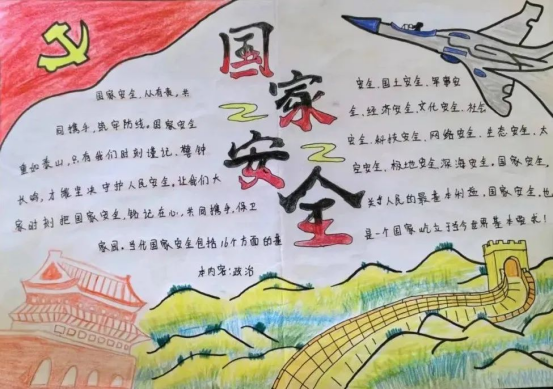 国家安全
国家安全,人人有责,共
同携手,筑守防线。国家安全
重如泰山,只有我们时刻谨记、警钟
长鸣,才能坚决守护人民安全,让我们大
家时刻把国家安全,铭记在心,共同携手,保卫
家园。当代国家安全包括16个方面的基
本内容:政治
安全、国土安全、军事安
全、经济安全、文化安全、社会
安全、科技安全、网络安全、生态安全、太
空安全、极地安全、深海安全。国家安全,
关乎人民的最基本利益,国家安全,也
是一个国家屹立于当今世界基本要求!